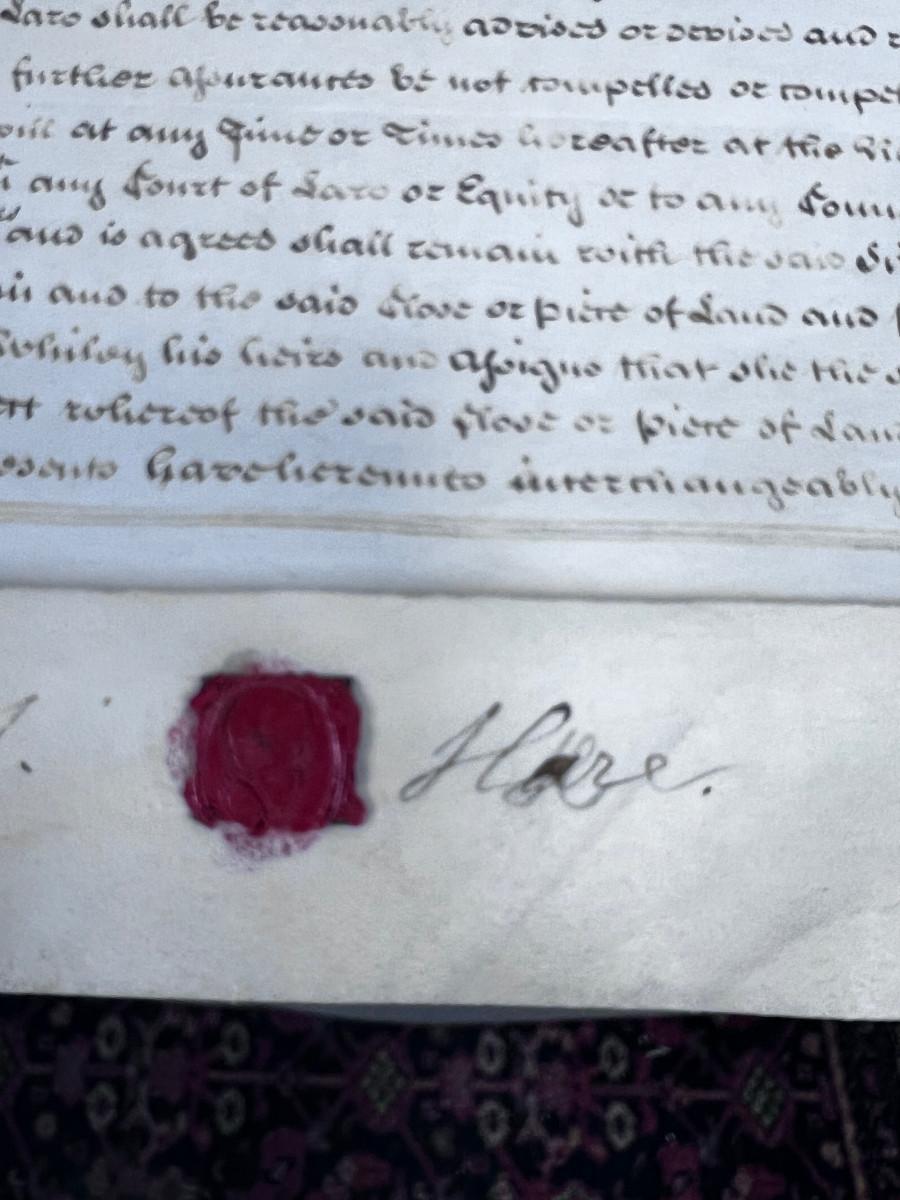 Law shall be reasonably advised or devised and
further Assurances be not compelled or
at any Time or Times hereafter at the
any Court of Law or Equity or to any
and is agreed shall remain with the said
and to the said Close or piece of Land and
his heirs and Assigns that she the
whereof the said Close or piece of Land
have hereunto interchangeably
Hare.